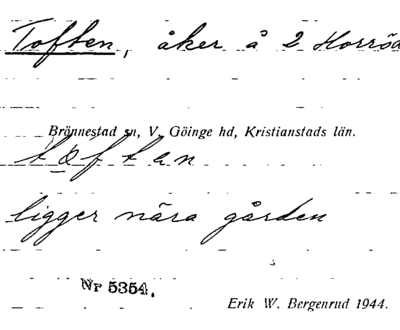 Toften, åker å 2 Horröd
Brännestad sn, V. Göinge hd, Kristianstads län.
tǫften
ligger nära gården
Nr 5354.
Erik W. Bergenrud 1944.